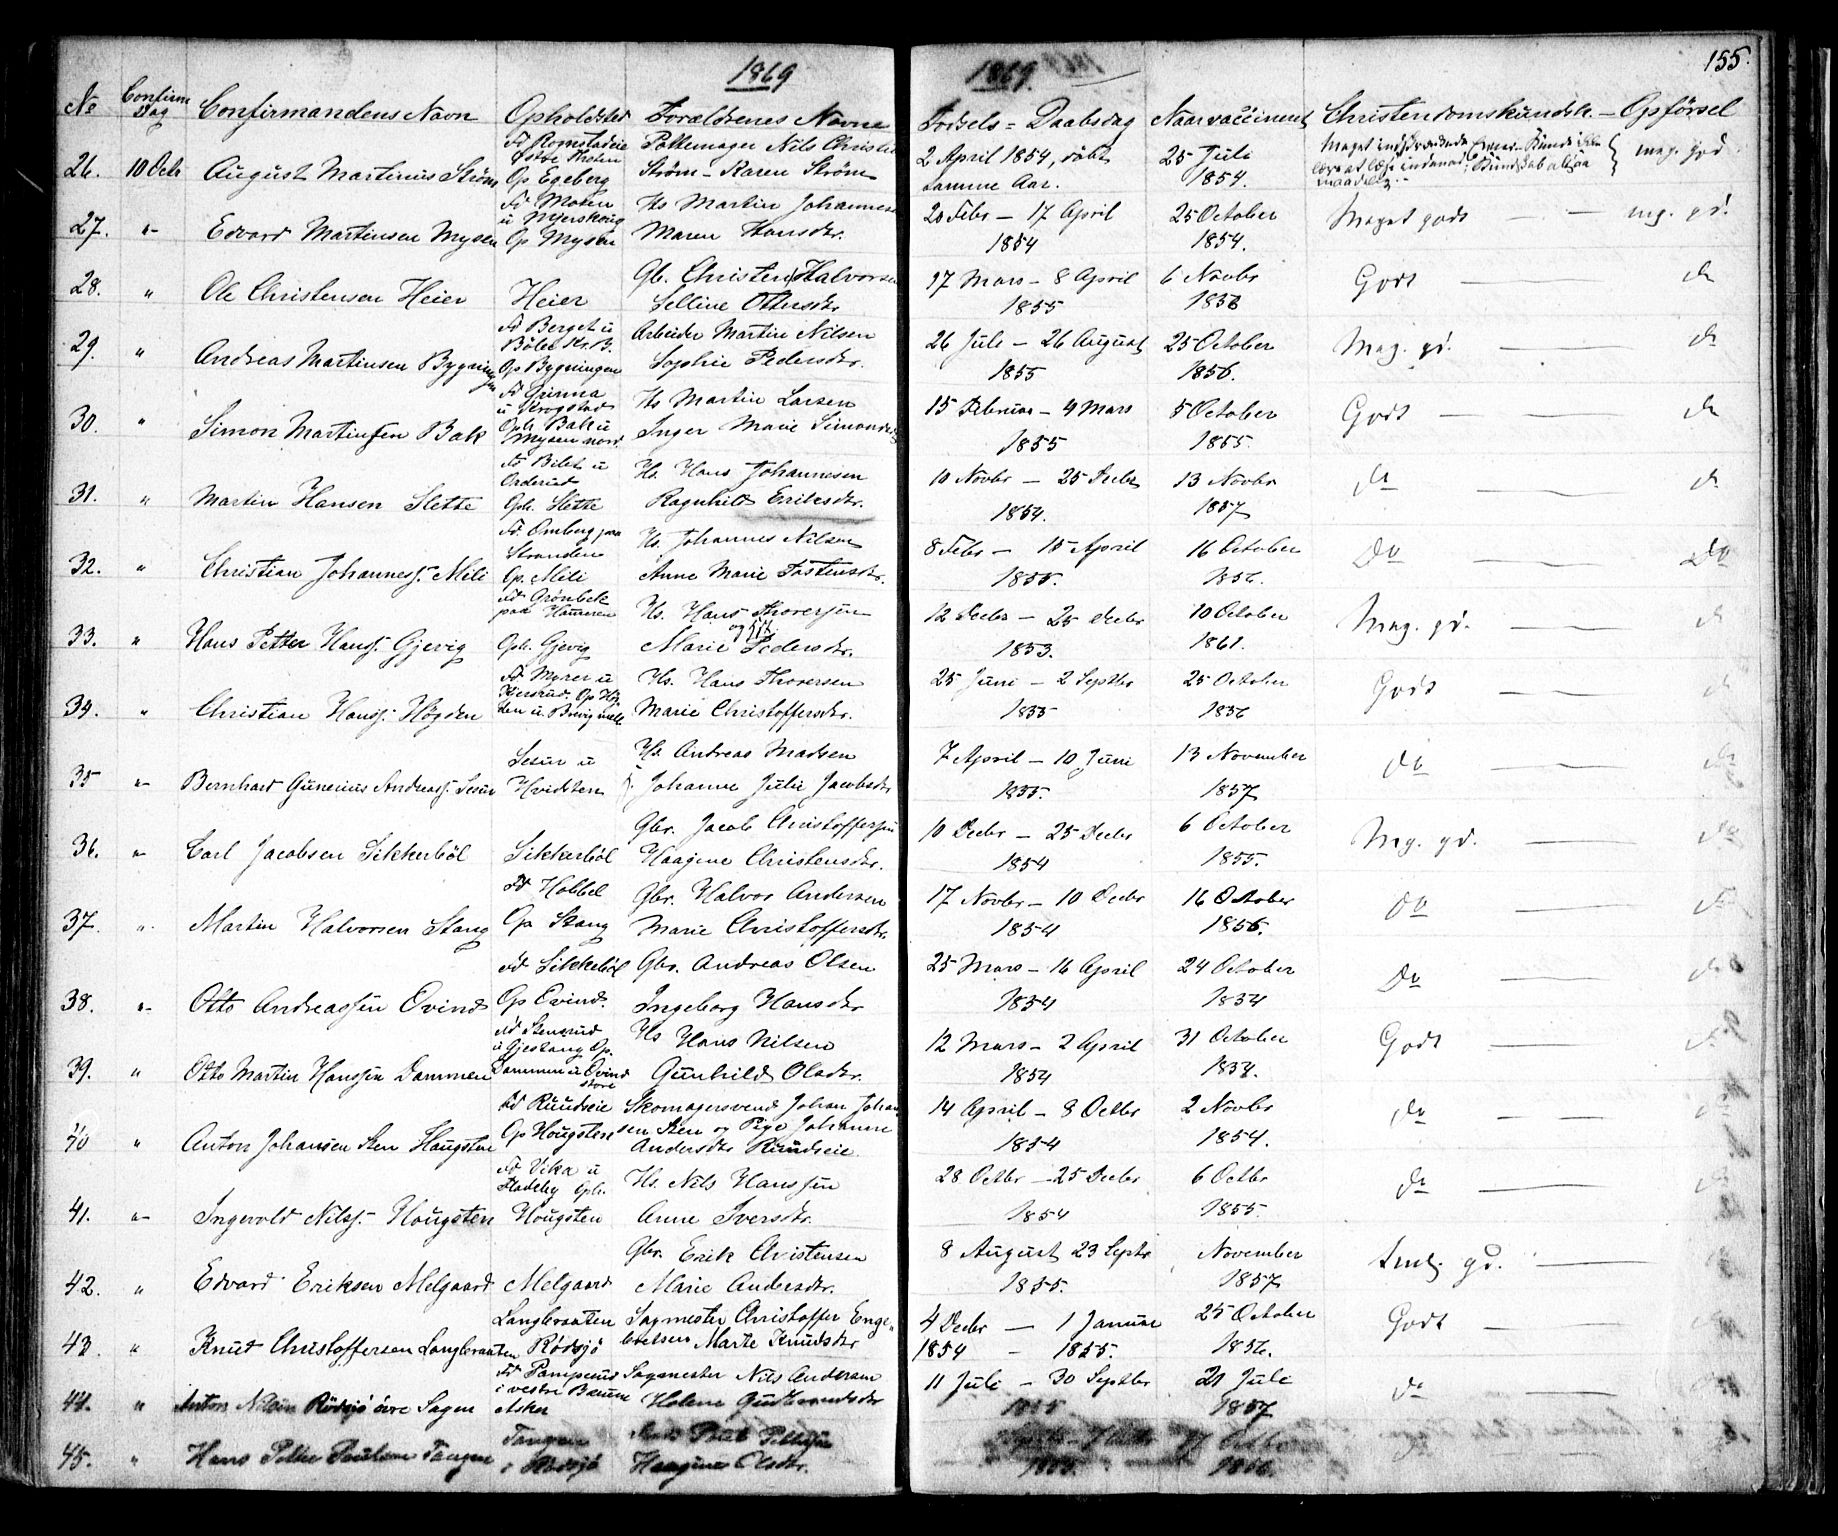 1869
1869.
155.
No Confirm Dag Confirmandens Navn Opholdsted Forældrenes Navne Fødsels - Daabsdag Naar vaccineret Christendomskundsk. - Opførsel
26. 10 Octr August Martinus Strøm
Op Egeberg
Pottemager Nils Christ
Strøm - Karen Strøm
2 April 1854, døbt
samme Aar.
25 Juli
1854.
mag. god
27. "- Edvard Martinsen Mysen
Fd Moken
Op Mysen
Hs Martin Johannese
Maren Hansdtr.
20 Febr - 17 April
1854
25 October
1854.
Maget godt — mg. gd.
28. " Ole Christensen Heier
Heier
Gb. Christen Halvorsen
Selline Ottersdtr
17 Mars - 8 April
1855
6 Novbr
1856
Godt — do
29. " Andreas Martinsen Bygningen
Fd Berget u
Op Bygningen
Arbeider Martin Nilsen
Sophie Pedersdtr.
26 Juli - 26 August
1855
25 October
1856.
Mag. gd. — do
30. " Simon Martinsen Bak
u Krogstad
Oph. Bak u
Mysen nord.
Hs Martin Larsen
Inger Marie Simonsdtr
15 Februar - 4 Mars
1855
5 October
1855.
Godt — do
31. " Martin Hansen Slette
Oph. Slette
Hs. Hans Johannesen
Ragnhild Eriksdtr.
10 Novbr - 25 Decbr
1854.
13 Novbr
1857
do — do
32. " Christian Johanness. Mili
Fd. Omberg paa
Stranden
Op. Mili
Hs. Johannes Nilsen
Anne Marie Tostensdtr.
8 Febr - 15 April
1855.
16 October
1856.
Do — Do
33. " Hans Petter Hanss. Gjevig
Fd Grønbek
paa Hammeren
Oph. Gjevig
Hs. Hans Thoresen
Marie Pedersdtr.
12 Decbr - 25 Decbr
1853.
10 October
1861.
Mag. gd. — do
34. " Christian Hanss. Høgden
Fd Myrer u
Hs. Hans Thoresen
Marie Christoffersdtr.
25 Juni - 2 Septbr
1855
25 October
1856
Godt — do
35 "- Bernhard Gunerius Andreass. Lesur
Lesur u
Hvidsten
Hs. Andreas Madsen
Johanne Julie Jacobsdtr
7 April - 10 Juni
1855.
13 November
1857
do — do
36. "- Carl Jacobsen Sikkerbøl
Sikkerbøl
Gbr. Jacob Christoffersen
Haagine Christensdtr.
10 Decbr - 25 Decbr
1854
6 October
1855.
Mg. gd. — do
37. " Martin Halvorsen Stang
Fd Hobbel
Op Stang
Gbr. Halvor Andersen
Marie Christoffersdtr.
17 Novbr - 10 Decbr
1854
16 October
1856.
do — do
38. "- Otto Andreassen Ovind
Fd Sikkebøl
Op Ovind.
Gbr. Andreas Olsen
Ingeborg Hansdtr
25 Mars - 16 April
1854
24 October
1854
Do — do
39. " Otto Martin Hanssen Dammen
Fd Stensrud
u Gjestang Op.
Dammen u Ovind
store
Hs Hans Nilsen
Gunhild Olsdtr.
12 Mars - 2 April
1854
31 October
1854.
Godt
40 " Anton Johansen Sten Haugsten
Fd Ruudseie
Op Hougsten
Skomagersvend Johan Johan
sen Sten og Pige Johanne
Andersdtr Ruudseie
14 April - 8 Octbr
1854
2 Novbr
1854.
do
41. "- Ingevold Nilss. Hougsten
Fd Vika u
Oph.
Hougsten
Hs. Nils Hanssen
Anne Iversdtr.
28 Octbr - 25 Decbr
1854
6 Octbr
1855.
do
42. " Edvard Eriksen Melgaard
Melgaard
Gbr. Erik Christensen
Marie Andersdtr.
8 August 23 Septr
1855.
November
1857
Tml. gd.
43. " Knut Christoffersen Langbraaten
Langbraaten
Rødsjø
Sagmester Christoffer Enge-
bretsen Marte Knudsdtr
4 Decbr — 1 Januar
1854 - 1855.
25 October
1856.
Godt
44. " Anton Nilsen Rødsjø øvre Sagen
i vestre Bærum
Asker
Sagmester Nils Andersen
Helene Gudbrandsdtr
11 Juli - 30 Septbr
1855
21 Juli
1857
do
45. " Hans Petter Paulsen Tangen
Tangen
i Rødsjø
Paul Pettersen
Haagine Olsdtr.